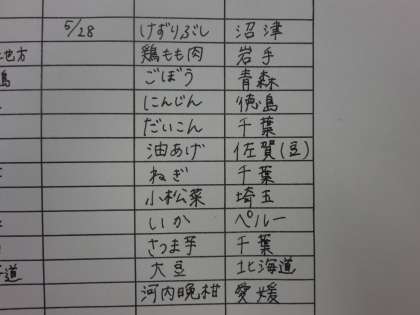 5/28 けずりぶし 沼津
地方 鶏もも肉 岩手
島 ごぼう 青森
にんじん 徳島
だいこん 千葉
油あげ 佐賀(豆)
ねぎ 千葉
小松菜 埼玉
いか ペルー
さつま芋 千葉
道 大豆 北海道
河内晩柑 愛媛